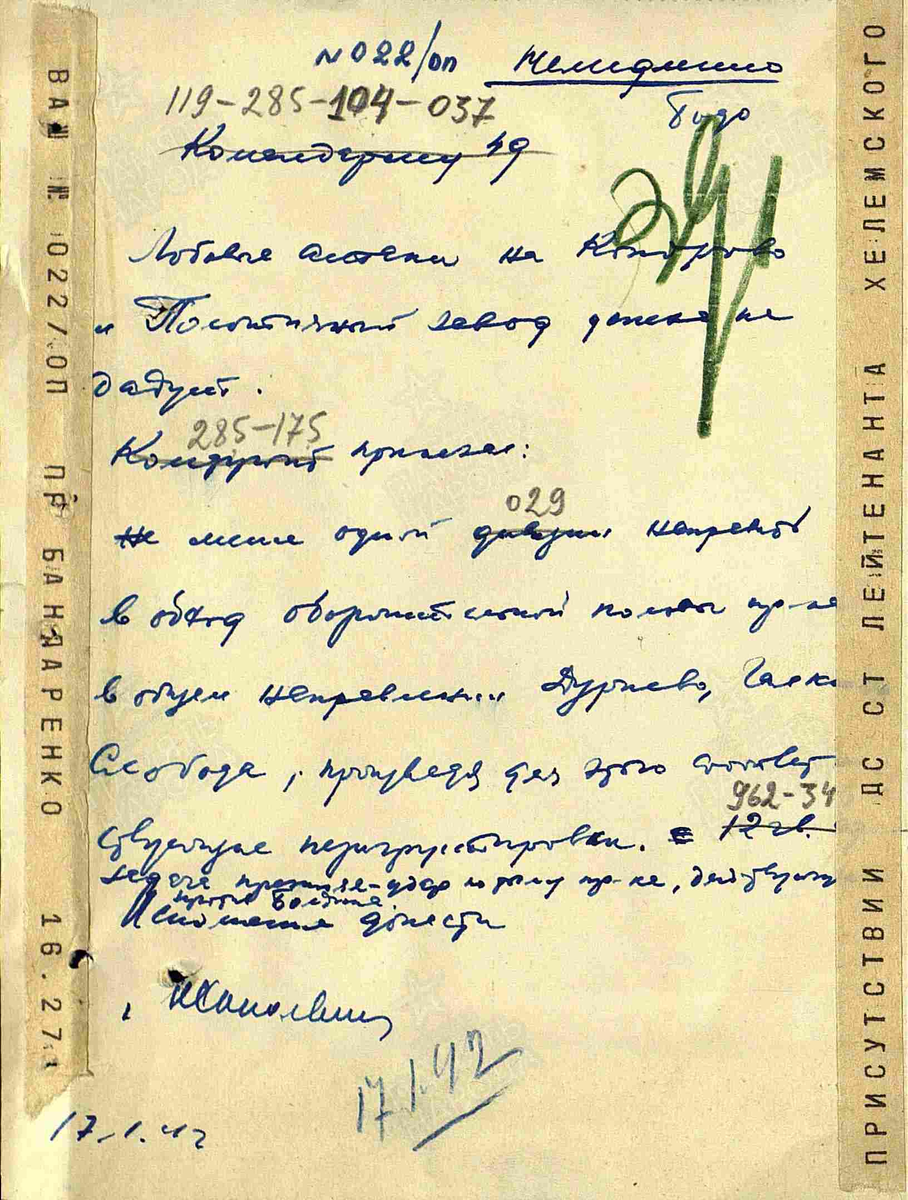 №022/оп Немедленно
119-285-104-037 Бодо
Командарму 49
Лобовые атаки на Кондрово
и Полотняный завод успеха не
дадут.
285-175
Комфронт приказал:
029
Не менее одной дивизии направить
в обход оборонительной полосы пр-ка
в общем направлении Дурнево, Галки
Слобода, произведя для этого соответ
962-34
ствующие перегруппировки. 12 гв.
задача прежняя-удар по тылу пр-ка, действующ
против Болдина
Исполнение донести
17.1.42
17.1.42
ВАШ № 022/ОП ПР БАНДАРЕНКО 16.27
ПРИСУТСТВИИ ДС СТ ЛЕЙТЕНАНТА ХЕЛЕМСКОГО